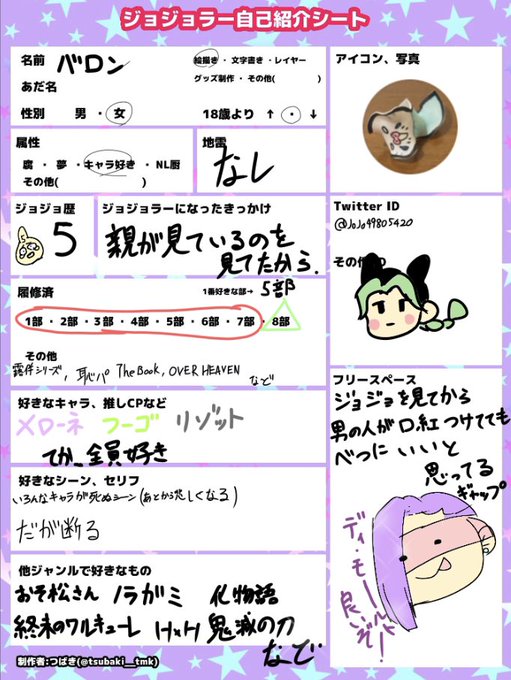 ジョジョラー自己紹介シート
名前 バロン
あだ名
性別 男・女
絵描き・文字書き・レイヤー
グッズ制作・その他( )
18歳より ↑ ・ ↓
アイコン、写真
属性
腐・夢・キャラ好き・NL厨
その他( )
地雷
なし
ジョジョ歴
5
ジョジョラーになったきっかけ
親が見ているのを
見てたから.
Twitter ID
@JoJo49805420
履修済
1番好きな部→ 5部
1部・2部・3部・4部・5部・6部・7部・8部
その他
露伴シリズ, 恥パ The Book, OVER HEAVEN
など
好きなキャラ、推しCPなど
メローネ フーゴ リゾット
てか、全員好き
フリースペース
ジョジョを見てから
男の人が口紅つけてても
べつにいいと
思ってる
ギャップ
ディ・モールト
良いぞ!
好きなシーン、セリフ
いろんなキャラが死ぬシーン(あとから悲しくなる)
だが断る
他ジャンルで好きなもの
おそ松さん ノラガミ 化物語
終末のワルキューレ H×H 鬼滅の刃
など
制作者:つばき(@tsubaki__tmk)